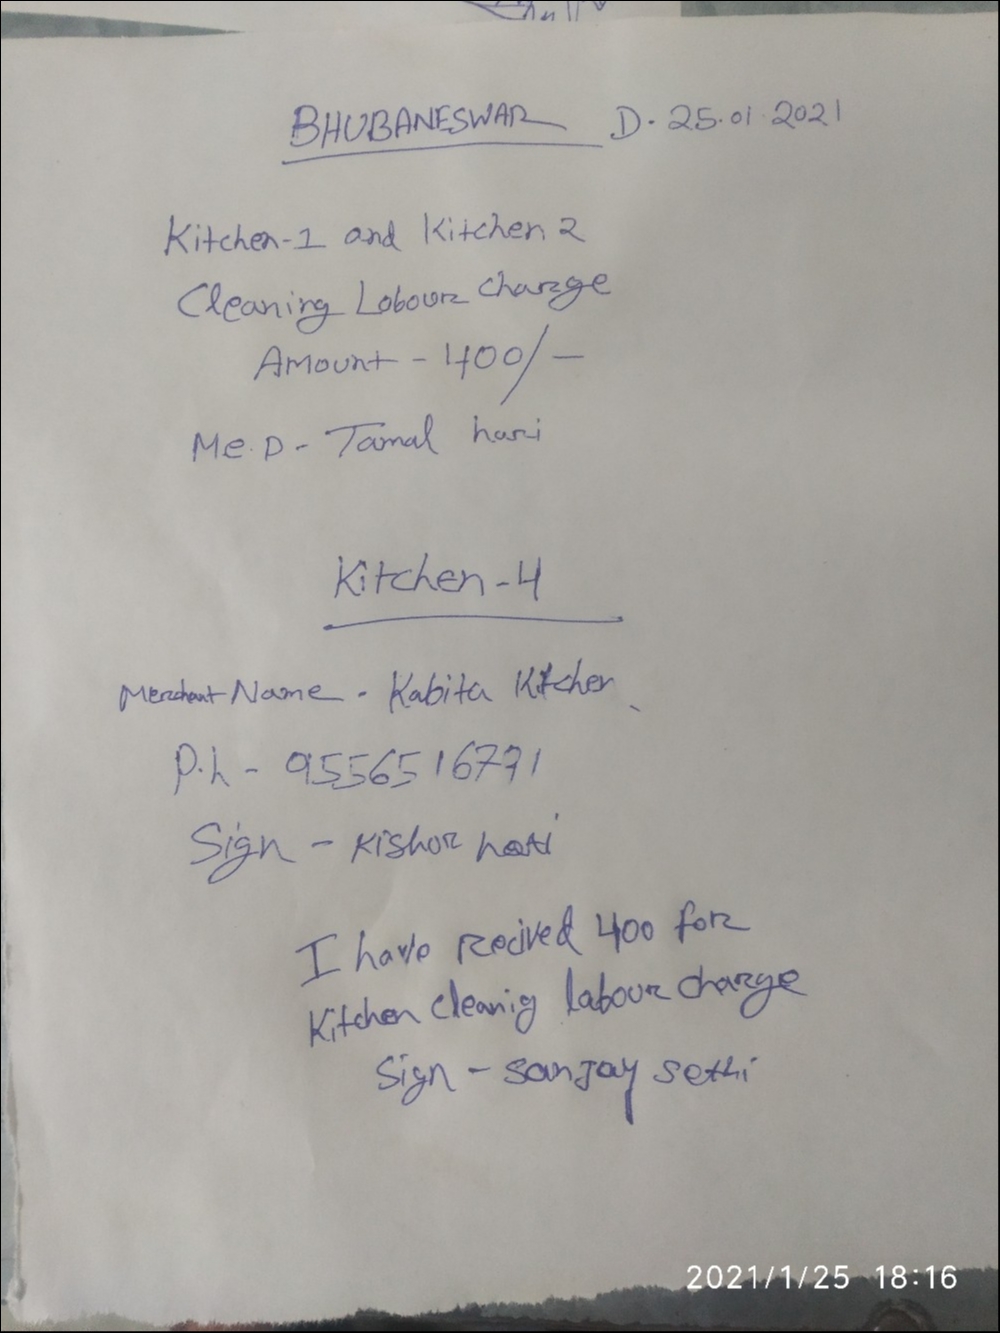 BHUBANESWAR D. 25.01.2021
Kitchen-1 and Kitchen 2
Cleaning Labour Charge
Amount - 400/-
Me.D - Tamal hari
Kitchen-4
Merchant Name - Kabita Kitchen
P.h - 9556516771
Sign - Kishor hati
I have recived 400 for
Kitchen cleanig labour charge
Sign - Sanjay sethi
2021/1/25 18:16